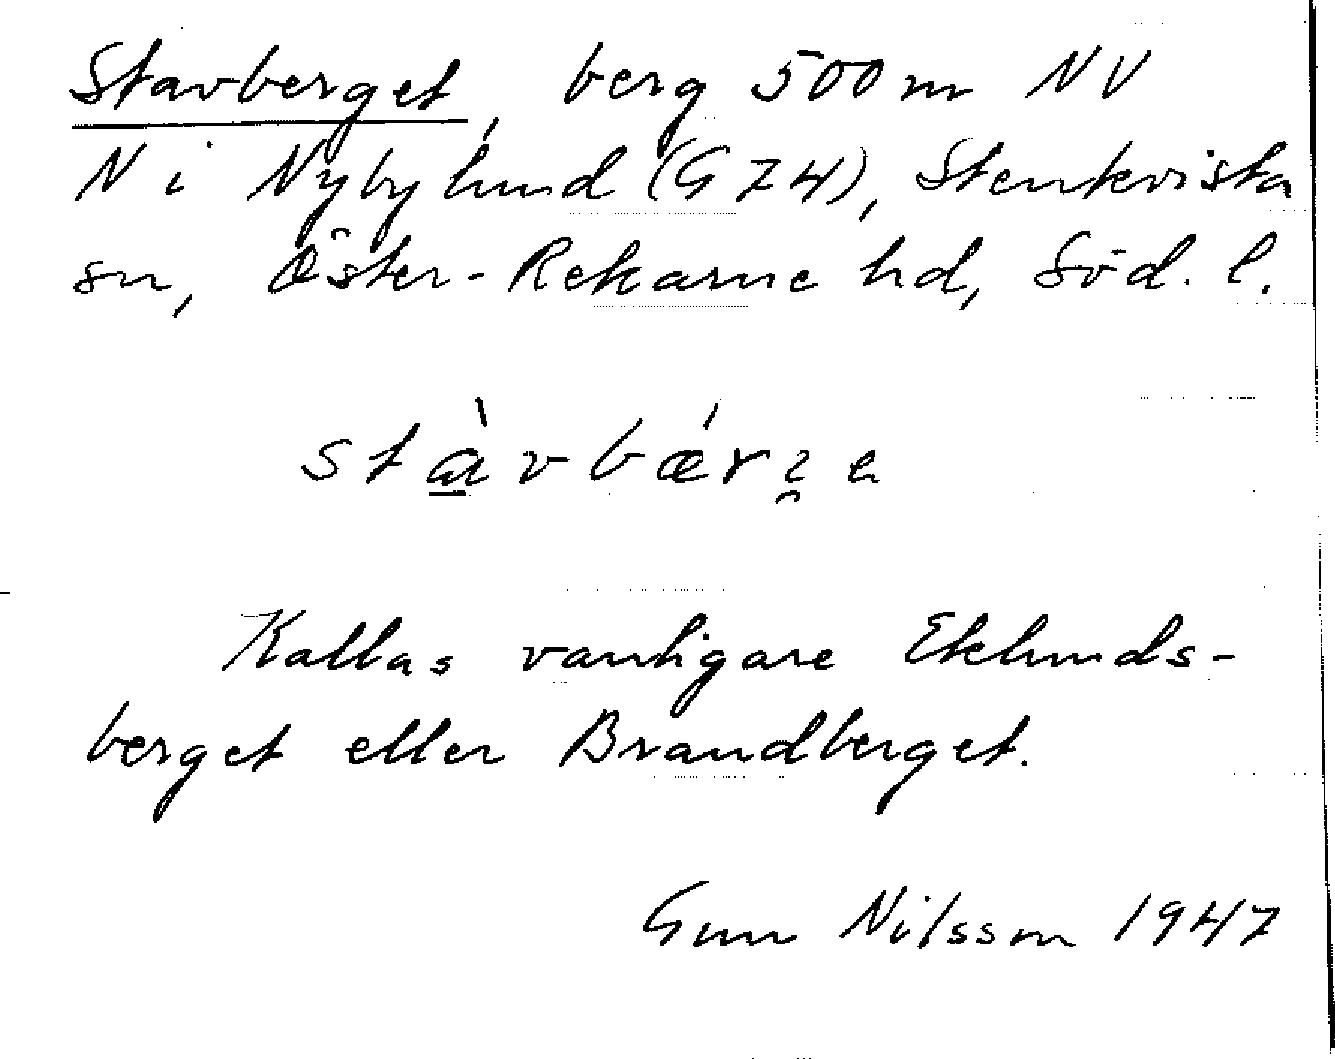 Stavberget, berg 500 m NV
N i Nybylund (G 74), Stenkvista
sn, Öster-Rekarne hd, Söd. l.
Kallas vanligare Eklunds-
berget eller Brandberget.
Gun Nilsson 1947